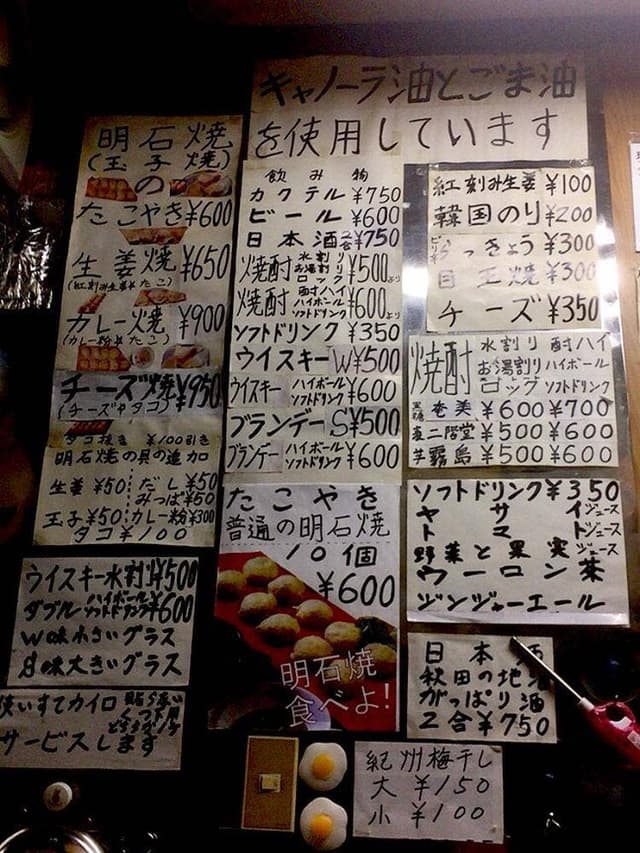 キャノーラ油とごま油
を使用しています
明石焼
(玉子焼)
の
たこやき¥600
生姜焼 ¥650
(紅刻み生姜とタコ)
カレー焼 ¥900
(カレー粉とタコ)
チーズ焼¥950
(チーズとタコ)
タコ抜き ¥100引き
明石焼の具の追加
生姜¥50 だし¥50
みつば¥50
玉子¥50 カレー粉¥300
タコ¥100
ウイスキー水割W¥500
ダブル ハイボール ソフトドリンク¥600
W味小さいグラス
S味大きいグラス
使いすてカイロ
サービスします
飲み物
カクテル¥750
ビール¥600
日本酒2合¥750
焼酎 水割り お湯割り ロック ¥500より
焼酎 酎ハイ ハイボール ソフトドリンク ¥600より
ソフトドリンク¥350
ウイスキーW¥500
ウイスキー ハイボール ソフトドリンク ¥600
ブランデーS¥500
ブランデー ハイボール ソフトドリンク ¥600
たこやき
普通の明石焼
10個
¥600
明石焼
食べよ!
紅刻み生姜¥100
韓国のり¥200
らっきょう¥300
目玉焼¥300
チーズ¥350
焼酎 水割り お湯割り ロック 酎ハイ ハイボール ソフトドリンク
黒糖 奄美 ¥600 ¥700
麦 二階堂 ¥500 ¥600
芋 霧島 ¥500 ¥600
ソフトドリンク¥350
ヤサイジュース
トマトジュース
野菜と果実ジュース
ウーロン茶
ジンジャーエール
日本酒
秋田の地酒
がっぱり酒
2合¥750
紀州梅干し
大 ¥150
小 ¥100